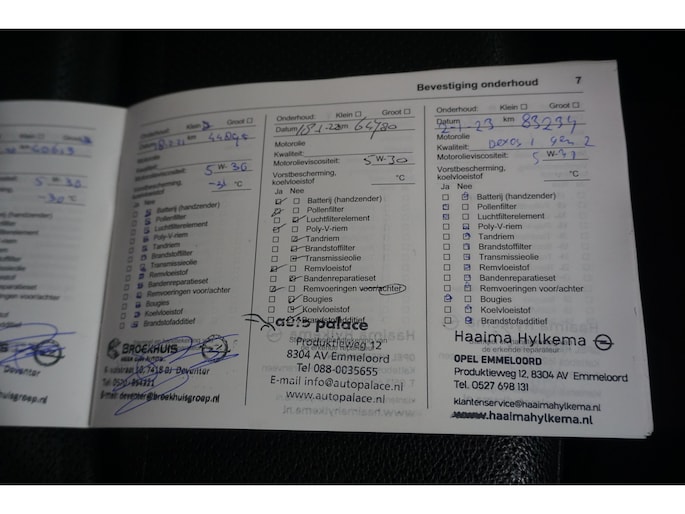 Bevestiging onderhoud 7
40613
5 W-30
-30 °C
Deventer
Onderhoud: Klein Groot
Datum km
Motorolie
Kwaliteit:
Motorolieviscositeit: 5 W-30
Vorstbescherming, koelvloeistof °C
Ja Nee
Batterij (handzender)
Pollenfilter
Luchtfilterelement
Poly-V-riem
Tandriem
Brandstoffilter
Transmissieolie
Remvloeistof
Bandenreparatieset
Remvoeringen voor/achter
Bougies
Koelvloeistof
Brandstofadditief
BROEKHUIS
7418 BJ Deventer
Tel. 0570
E-mail: deventer@broekhuisgroep.nl
Onderhoud: Klein Groot
Datum 18-1-22 km 64780
Motorolie
Kwaliteit:
Motorolieviscositeit: 5 W-30
Vorstbescherming, koelvloeistof °C
Ja Nee
Batterij (handzender)
Pollenfilter
Luchtfilterelement
Poly-V-riem
Tandriem
Brandstoffilter
Transmissieolie
Remvloeistof
Bandenreparatieset
Remvoeringen voor/achter
Bougies
Koelvloeistof
Brandstofadditief
palace
Produktieweg 12
8304 AV Emmeloord
Tel 088-0035655
E-mail info@autopalace.nl
www.autopalace.nl
Onderhoud: Klein Groot
Datum 2-1-23 km 83234
Motorolie
Kwaliteit: Dexos 1 gen 2
Motorolieviscositeit: 5 W-30
Vorstbescherming, koelvloeistof °C
Ja Nee
Batterij (handzender)
Pollenfilter
Luchtfilterelement
Poly-V-riem
Tandriem
Brandstoffilter
Transmissieolie
Remvloeistof
Bandenreparatieset
Remvoeringen voor/achter
Bougies
Koelvloeistof
Brandstofadditief
Haaima Hylkema
de erkende reparateur
OPEL EMMELOORD
Produktieweg 12, 8304 AV Emmeloord
Tel. 0527 698 131
klantenservice@haaimahylkema.nl
www.haaimahylkema.nl